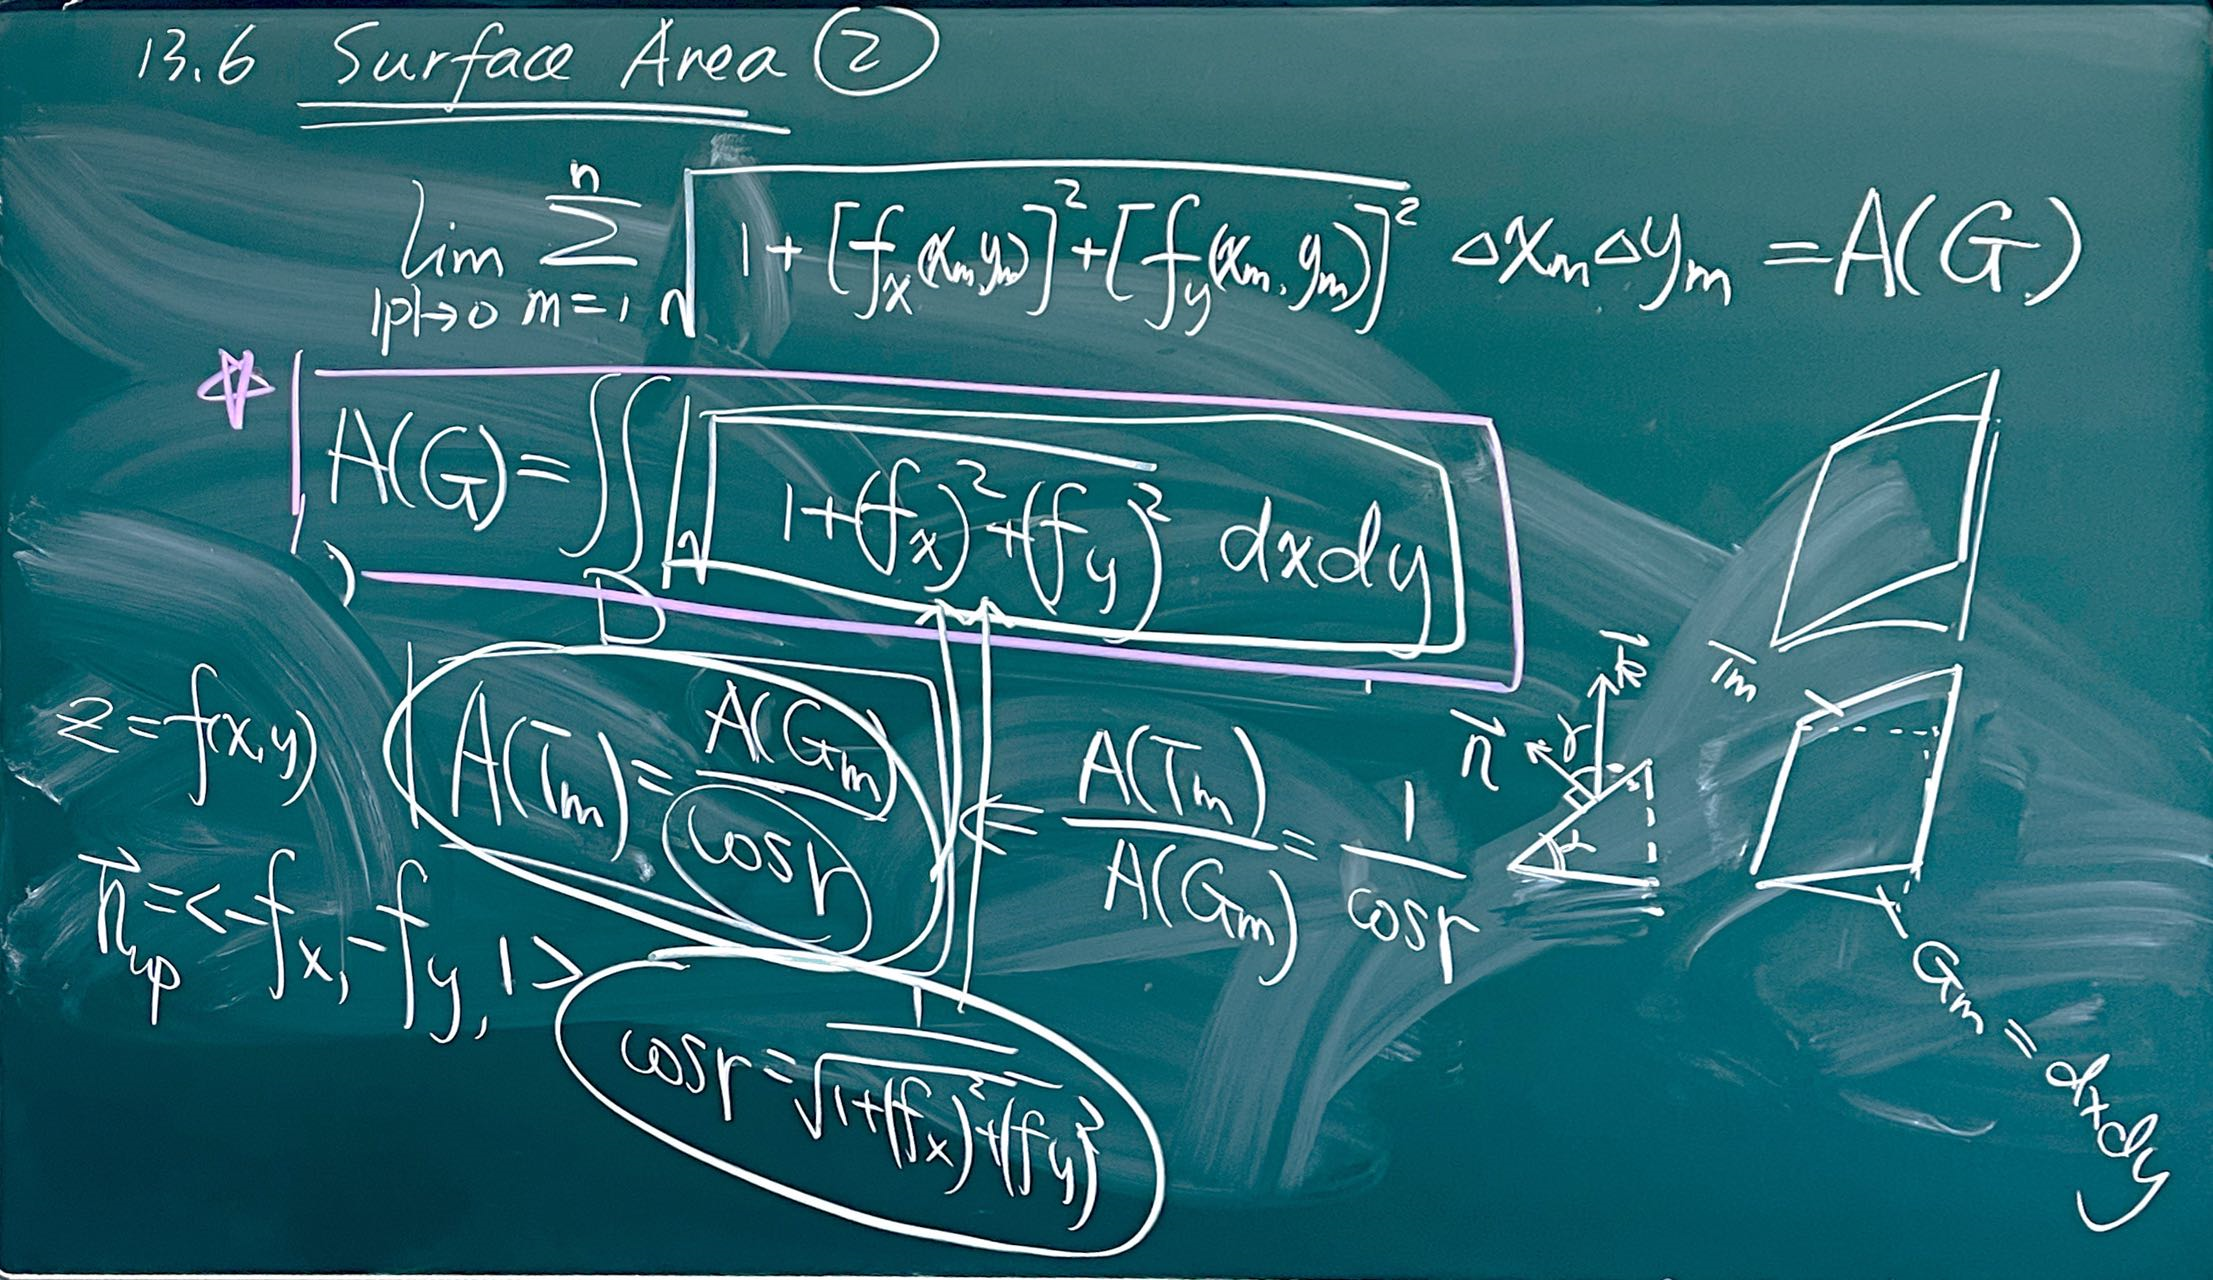 13.6 Surface Area ②
lim |p|→0 n Σ m=1 √(1+[f_x(x_m,y_m)]²+[f_y(x_m,y_m)]²) Δx_mΔy_m = A(G)
A(G)=∬_D √(1+(f_x)²+(f_y)²) dxdy
z=f(x,y)
A(T_m)=A(G_m)/cosγ ⇐ A(T_m)/A(G_m)=1/cosγ
n⃗_up=<-f_x,-f_y,1>
cosγ=1/√(1+(f_x)²+(f_y)²)
k⃗
n⃗
γ
T_m
G_m=dxdy